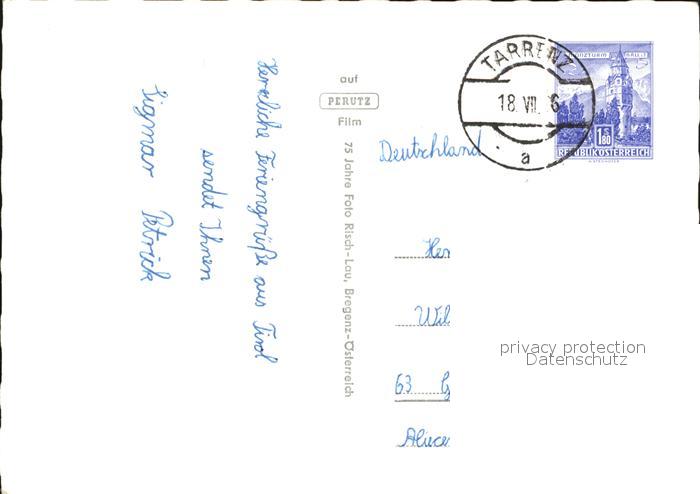 Herzliche Feriengrüße aus Tirol
sendet Ihnen
Sigmar Petrick
auf
PERUTZ
Film
75 Jahre Foto Risch-Lau, Bregenz-Österreich
TARRENZ
18 VII. 6
a
MÜNZTURM HALL I.T.
1 S 80
REPUBLIK ÖSTERREICH
Deutschland
Her
Wil
63 G
Alice
privacy protection
Datenschutz